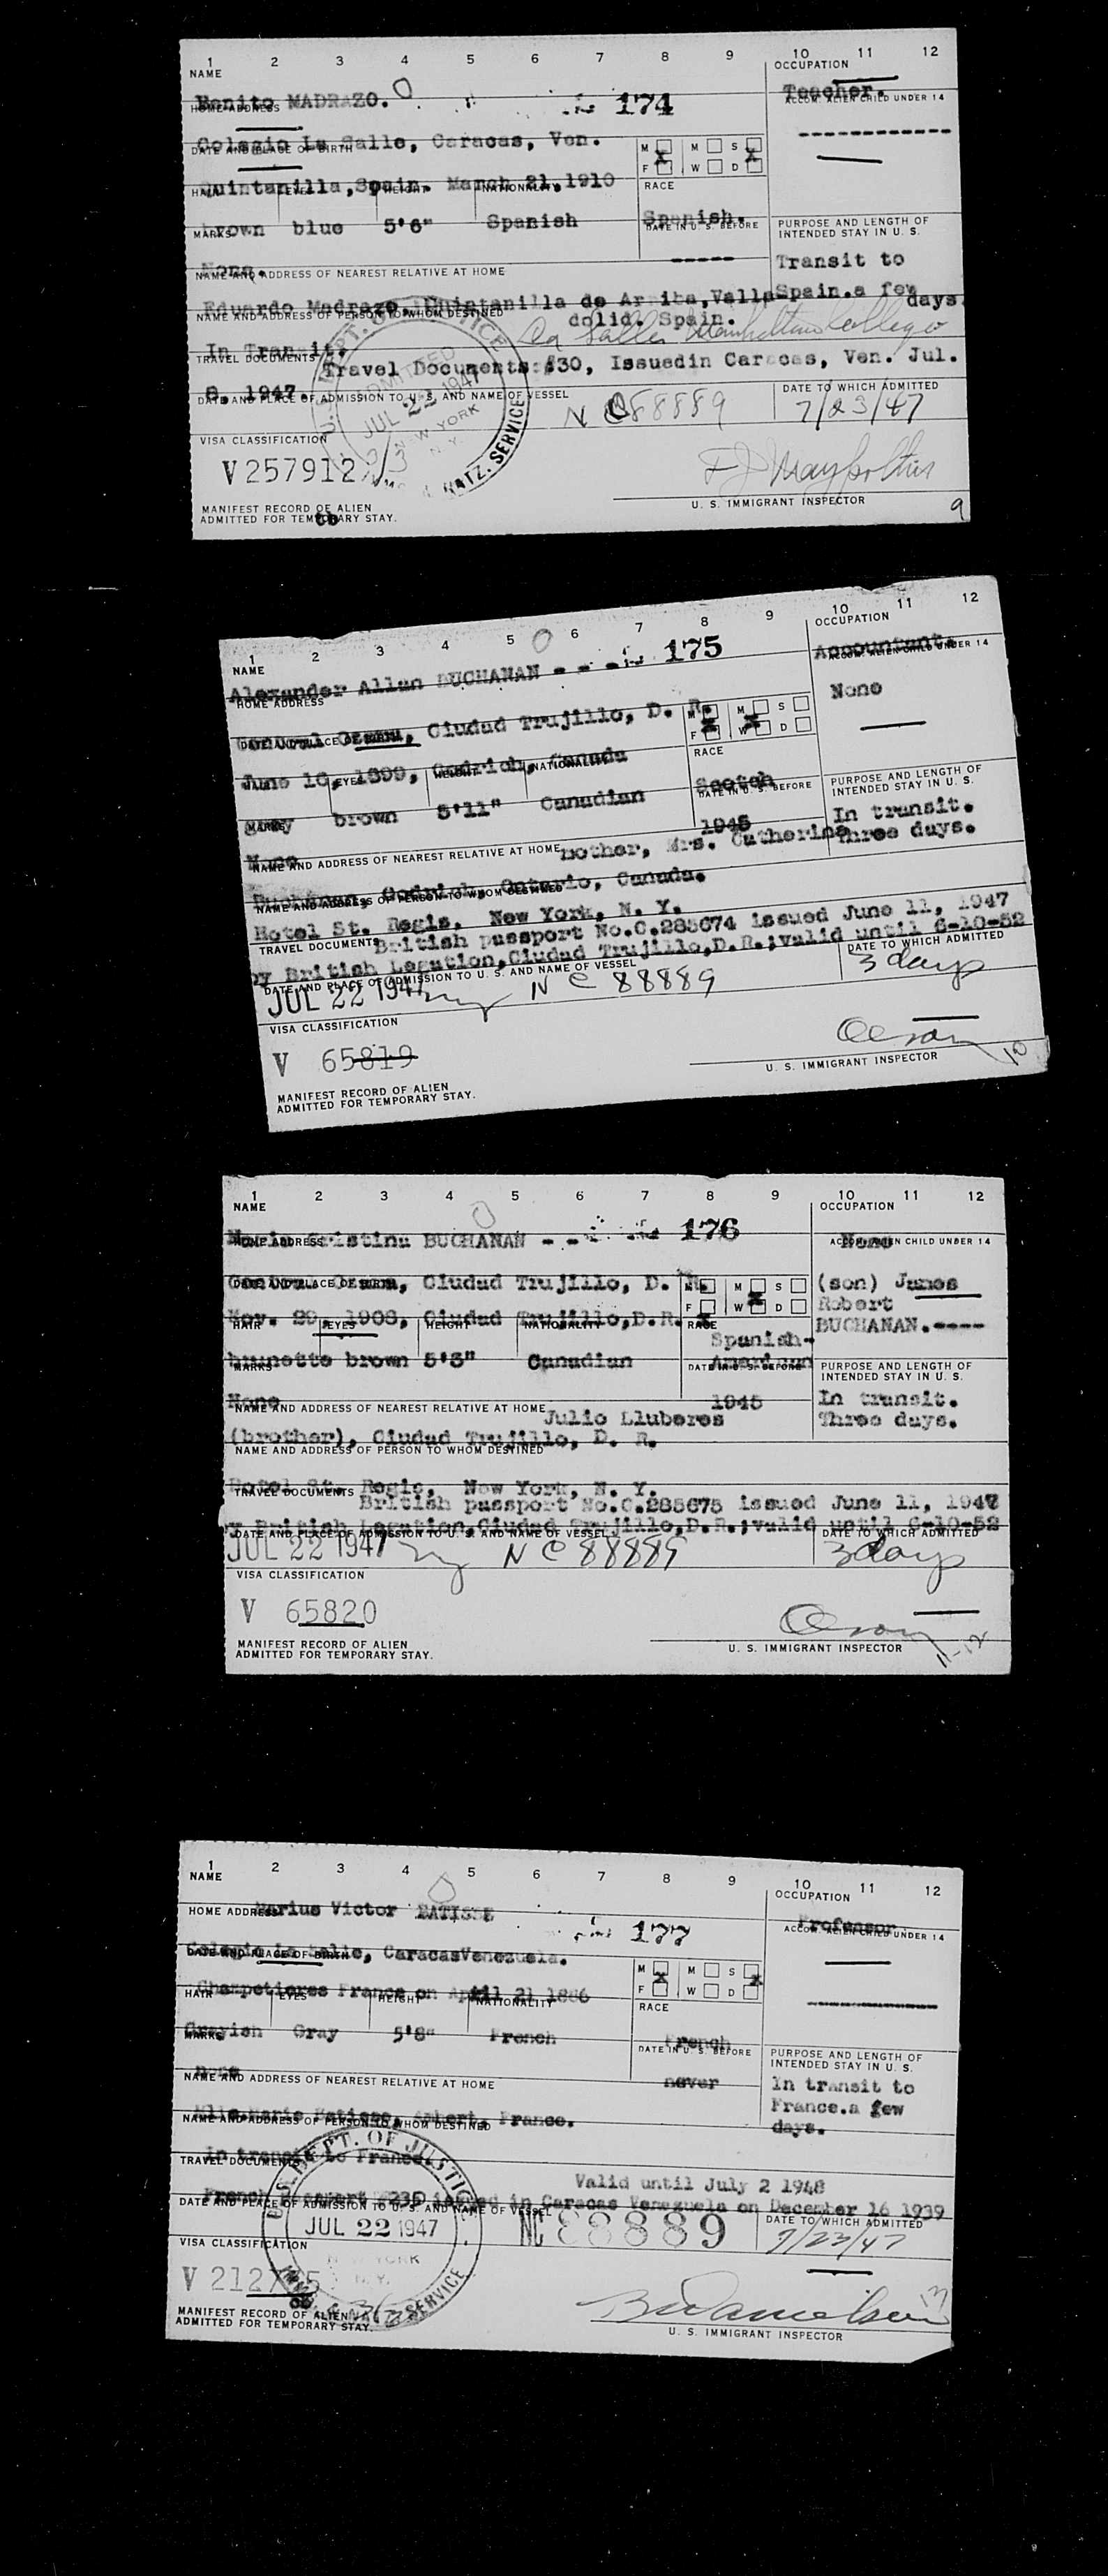 1 2 3 4 5 6 7 8 9 10 11 12
NAME OCCUPATION
Benito MADRAZO. 174 Teacher.
HOME ADDRESS ACCOM. ALIEN CHILD UNDER 14
Colegio La Salle, Caracas, Ven.
DATE AND PLACE OF BIRTH M M S
F X W D X
Quintanilla, Spain. March 21, 1910
HAIR EYES HEIGHT NATIONALITY RACE
brown blue 5'6" Spanish Spanish.
MARKS DATE IN U. S. BEFORE PURPOSE AND LENGTH OF
INTENDED STAY IN U. S.
None. ----- Transit to
NAME AND ADDRESS OF NEAREST RELATIVE AT HOME
Eduardo Madrazo, Quintanilla de Arriba, Valla Spain. a few
dolid. Spain. days.
NAME AND ADDRESS OF PERSON TO WHOM DESTINED
La Salle Manhattan College
In Transit.
TRAVEL DOCUMENTS Travel Documents: #30, Issuedin Caracas, Ven. Jul.
8, 1947.
DATE AND PLACE OF ADMISSION TO U. S. AND NAME OF VESSEL DATE TO WHICH ADMITTED
ADMITTED JUL 22 1947 NEW YORK N. Y. NC 88889 7/23/47
VISA CLASSIFICATION
V 257912
U. S. IMMIGRANT INSPECTOR
MANIFEST RECORD OF ALIEN 9
ADMITTED FOR TEMPORARY STAY.
1 2 3 4 5 6 7 8 9 10 11 12
NAME OCCUPATION
Alexander Allan BUCHANAN - - - 175 Accountant.
HOME ADDRESS ACCOM. ALIEN CHILD UNDER 14
Ciudad Trujillo, D. R. None
DATE AND PLACE OF BIRTH M X M S
F W D
June 16, 1899, Godrich, Canada
EYES HEIGHT NATIONALITY RACE
gray brown 5'11" Canadian Scotch
MARKS DATE IN U. S. BEFORE PURPOSE AND LENGTH OF
INTENDED STAY IN U. S.
None 1945 In transit.
NAME AND ADDRESS OF NEAREST RELATIVE AT HOME mother, Mrs. Catherine Three days.
Buchanan, Godrich, Ontario, Canada.
NAME AND ADDRESS OF PERSON TO WHOM DESTINED
Hotel St. Regis, New York, N. Y.
TRAVEL DOCUMENTS British passport No.C.285674 issued June 11, 1947
by British Legation, Ciudad Trujillo, D.R.; valid until 6-10-52
DATE AND PLACE OF ADMISSION TO U. S. AND NAME OF VESSEL DATE TO WHICH ADMITTED
JUL 22 1947 ny NC 88889 3 days
VISA CLASSIFICATION
V 65819 Olson
U. S. IMMIGRANT INSPECTOR 10
MANIFEST RECORD OF ALIEN
ADMITTED FOR TEMPORARY STAY.
1 2 3 4 5 6 7 8 9 10 11 12
NAME OCCUPATION
Cristina BUCHANAN - - 176 None
HOME ADDRESS ACCOM. ALIEN CHILD UNDER 14
Ciudad Trujillo, D. R. (son) James
DATE AND PLACE OF BIRTH M M S Robert
F W D BUCHANAN.----
Nov. 29, 1908, Ciudad Trujillo, D.R.
HAIR EYES HEIGHT NATIONALITY RACE
Spanish-
brunette brown 5'3" Canadian American
MARKS DATE IN U. S. BEFORE PURPOSE AND LENGTH OF
INTENDED STAY IN U. S.
None 1945 In transit.
NAME AND ADDRESS OF NEAREST RELATIVE AT HOME Julio Lluberes Three days.
(brother), Ciudad Trujillo, D. R.
NAME AND ADDRESS OF PERSON TO WHOM DESTINED
Hotel St. Regis, New York, N. Y.
TRAVEL DOCUMENTS British passport No.C.285675 issued June 11, 1947
by British Legation, Ciudad Trujillo, D.R.; valid until 6-10-52
DATE AND PLACE OF ADMISSION TO U. S. AND NAME OF VESSEL DATE TO WHICH ADMITTED
JUL 22 1947 ny NC 88889 3 days
VISA CLASSIFICATION
V 65820 Olson
MANIFEST RECORD OF ALIEN U. S. IMMIGRANT INSPECTOR 11-12
ADMITTED FOR TEMPORARY STAY.
1 2 3 4 5 6 7 8 9 10 11 12
NAME OCCUPATION
Marius Victor MATISSE 177 Professor
HOME ADDRESS ACCOM. ALIEN CHILD UNDER 14
Colegio la Salle, Caracas Venezuela.
DATE AND PLACE OF BIRTH M M S
F X W D X
Champetieres France on April 21 1886
HAIR EYES HEIGHT NATIONALITY RACE
Grayish Gray 5'8" French French
MARKS DATE IN U. S. BEFORE PURPOSE AND LENGTH OF
INTENDED STAY IN U. S.
none never In transit to
NAME AND ADDRESS OF NEAREST RELATIVE AT HOME France. a few
days.
Mlle Marie Matisse, Ambert, France.
NAME AND ADDRESS OF PERSON TO WHOM DESTINED
in transit to France.
TRAVEL DOCUMENTS Valid until July 2 1948
French Passport 235 issued in Caracas Venezuela on December 16 1939
DATE AND PLACE OF ADMISSION TO U. S. AND NAME OF VESSEL DATE TO WHICH ADMITTED
U.S. DEPT. OF JUSTICE JUL 22 1947 NEW YORK N. Y. NC 88889 7/23/47
VISA CLASSIFICATION
V
MANIFEST RECORD OF ALIEN 13
ADMITTED FOR TEMPORARY STAY. U. S. IMMIGRANT INSPECTOR